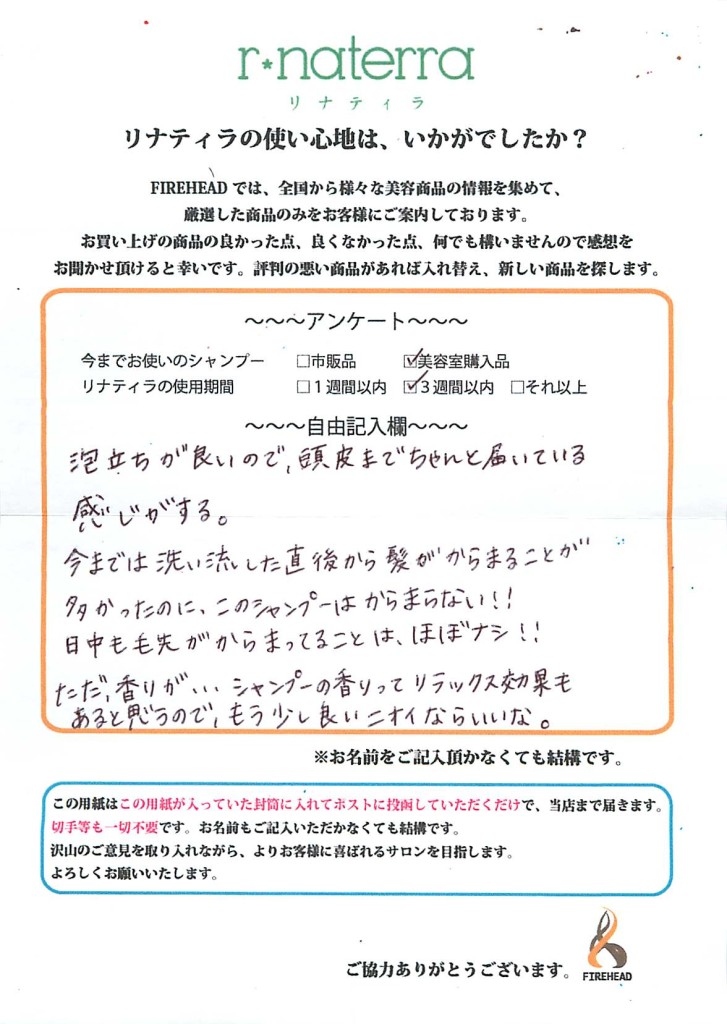 r*naterra
リナティラ
リナティラの使い心地は、いかがでしたか？
FIREHEADでは、全国から様々な美容商品の情報を集めて、
厳選した商品のみをお客様にご案内しております。
お買い上げの商品の良かった点、良くなかった点、何でも構いませんので感想を
お聞かせ頂けると幸いです。評判の悪い商品があれば入れ替え、新しい商品を探します。
～～～アンケート～～～
今までお使いのシャンプー □市販品 ☑美容室購入品
リナティラの使用期間 □１週間以内 ☑３週間以内 □それ以上
～～～自由記入欄～～～
泡立ちが良いので、頭皮までちゃんと届いている
感じがする。
今までは洗い流した直後から髪がからまることが
多かったのに、このシャンプーはからまらない！！
日中も毛先がからまってることは、ほぼナシ！！
ただ、香りが… シャンプーの香りってリラックス効果も
あると思うので、もう少し良いニオイならいいな。
※お名前をご記入頂かなくても結構です。
この用紙はこの用紙が入っていた封筒に入れてポストに投函していただくだけで、当店まで届きます。
切手等も一切不要です。お名前もご記入いただかなくても結構です。
沢山のご意見を取り入れながら、よりお客様に喜ばれるサロンを目指します。
よろしくお願いいたします。
ご協力ありがとうございます。
FIREHEAD